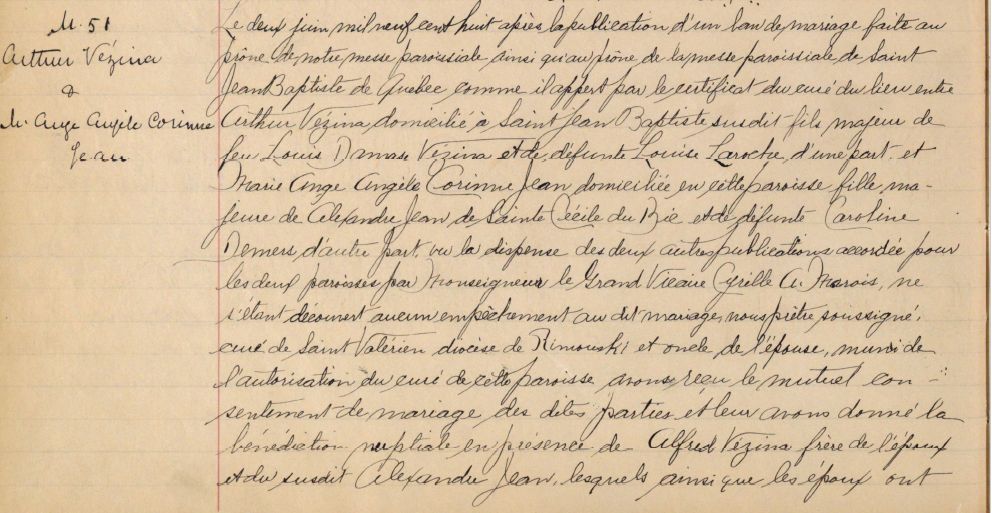 M. 51
Arthur Vézina
&
M. Ange Angèle Corinne
Jean
Le deux juin mil neuf cent huit après la publication d'un ban de mariage faite au
prône de notre messe paroissiale ainsi qu'au prône de la messe paroissiale de Saint
Jean Baptiste de Québec comme il appert par le certificat du curé du lieu entre
Arthur Vézina domicilié à Saint Jean Baptiste susdit fils majeur de
feu Louis Damase Vézina et de défunte Louise Laroche, d'une part. et
Marie Ange Angèle Corinne Jean domiciliée en cette paroisse fille, ma-
jeure de Alexandre Jean de Sainte Cécile du Bic et de défunte Caroline
Demers d'autre part, vu la dispense des deux autres publications accordée pour
les deux paroisses par Monseigneur le Grand Vicaire Cyrille A. Marois, ne
s'étant découvert aucun empêchement au dit mariage, nous prêtre soussigné,
curé de Saint Valérien diocèse de Rimouski et oncle de l'épouse, muni de
l'autorisation du curé de cette paroisse avons reçu le mutuel con-
sentement de mariage des dites parties et leur avons donné la
bénédiction nuptiale en présence de Alfred Vézina frère de l'époux
et du susdit Alexandre Jean, lesquels ainsi que les époux ont